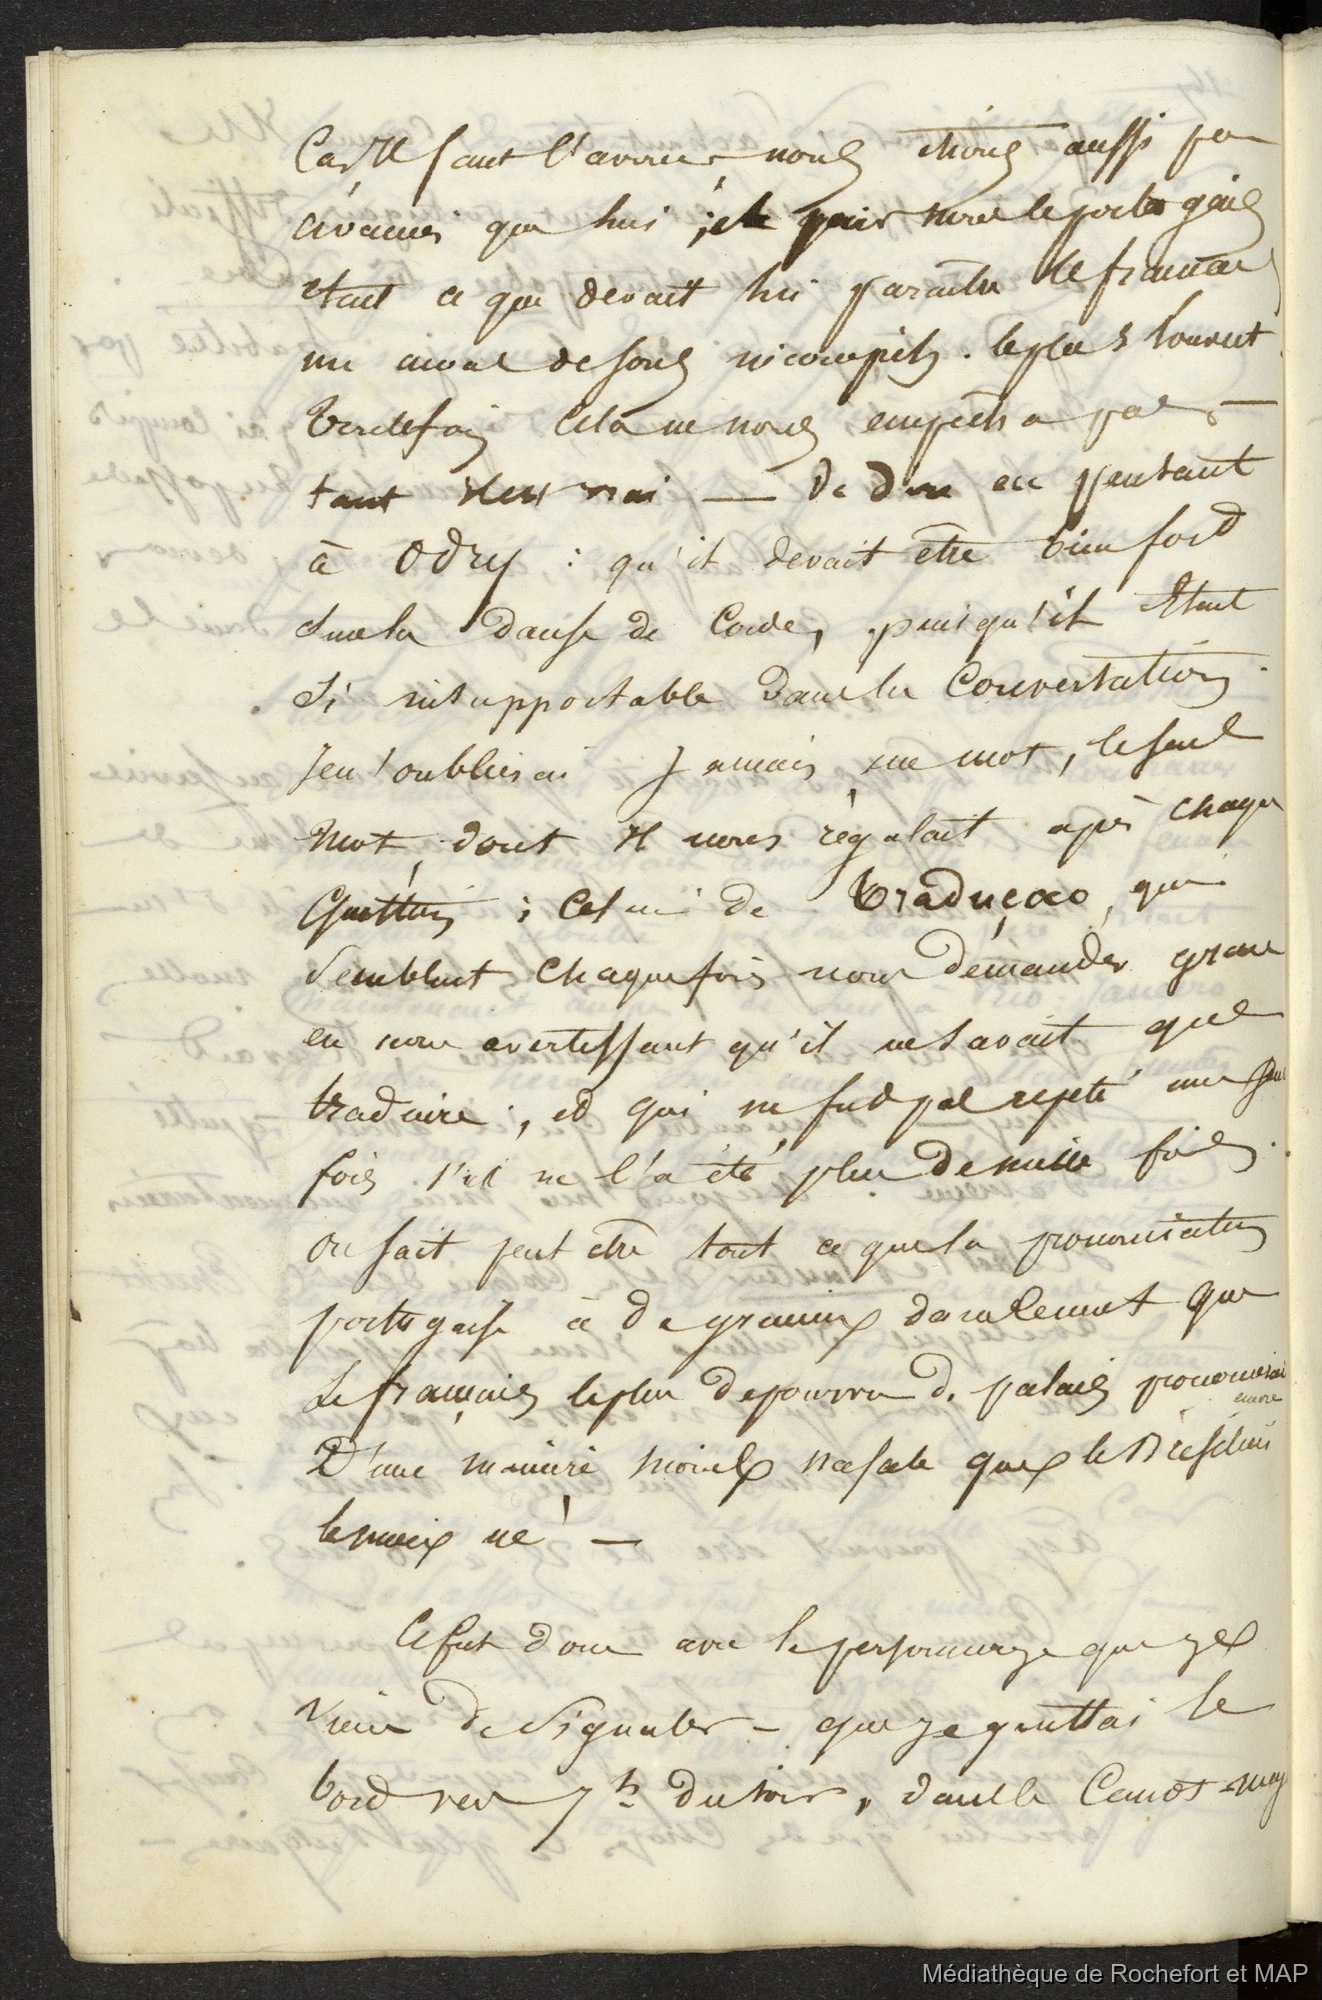 Car Il faut l'avouer nous étions aussi peu
avancés que lui ; et pour nous le portugais
était ce que devait lui paraitre le français
un amas de sons incompris. le plus souvent
toutefois cela ne nous empêcha pas —
tant — de dire en pensant
à Odry : qu'il devait être bien fort
sur la danse de Corde, puisqu'il Etait
si insupportable dans la Conversation.
Je n'oublierai Jamais un mot, le seul
mot, dont Il nous régalait après chaque
question ; Celui de Traduçao, qui
semblait chaque fois nous demander grace
en nous avertissant qu'il ne savait que
traduire ; et qui ne fut pas repeté une seule
fois s'il ne l'a été plus de mille fois.
On sait peut être tout ce que la prononciation
portugaise à de gramin que
le français le plus depourvu de palais prononcerait
encore
D'une manière moins nasale que le Bresilien
le mieux né ! —
Ce fut donc avec le personnage que je
viens de signaler — que je quittai le
bord vers 7h du soir, dans le Canot
Médiathèque de Rochefort et MAP